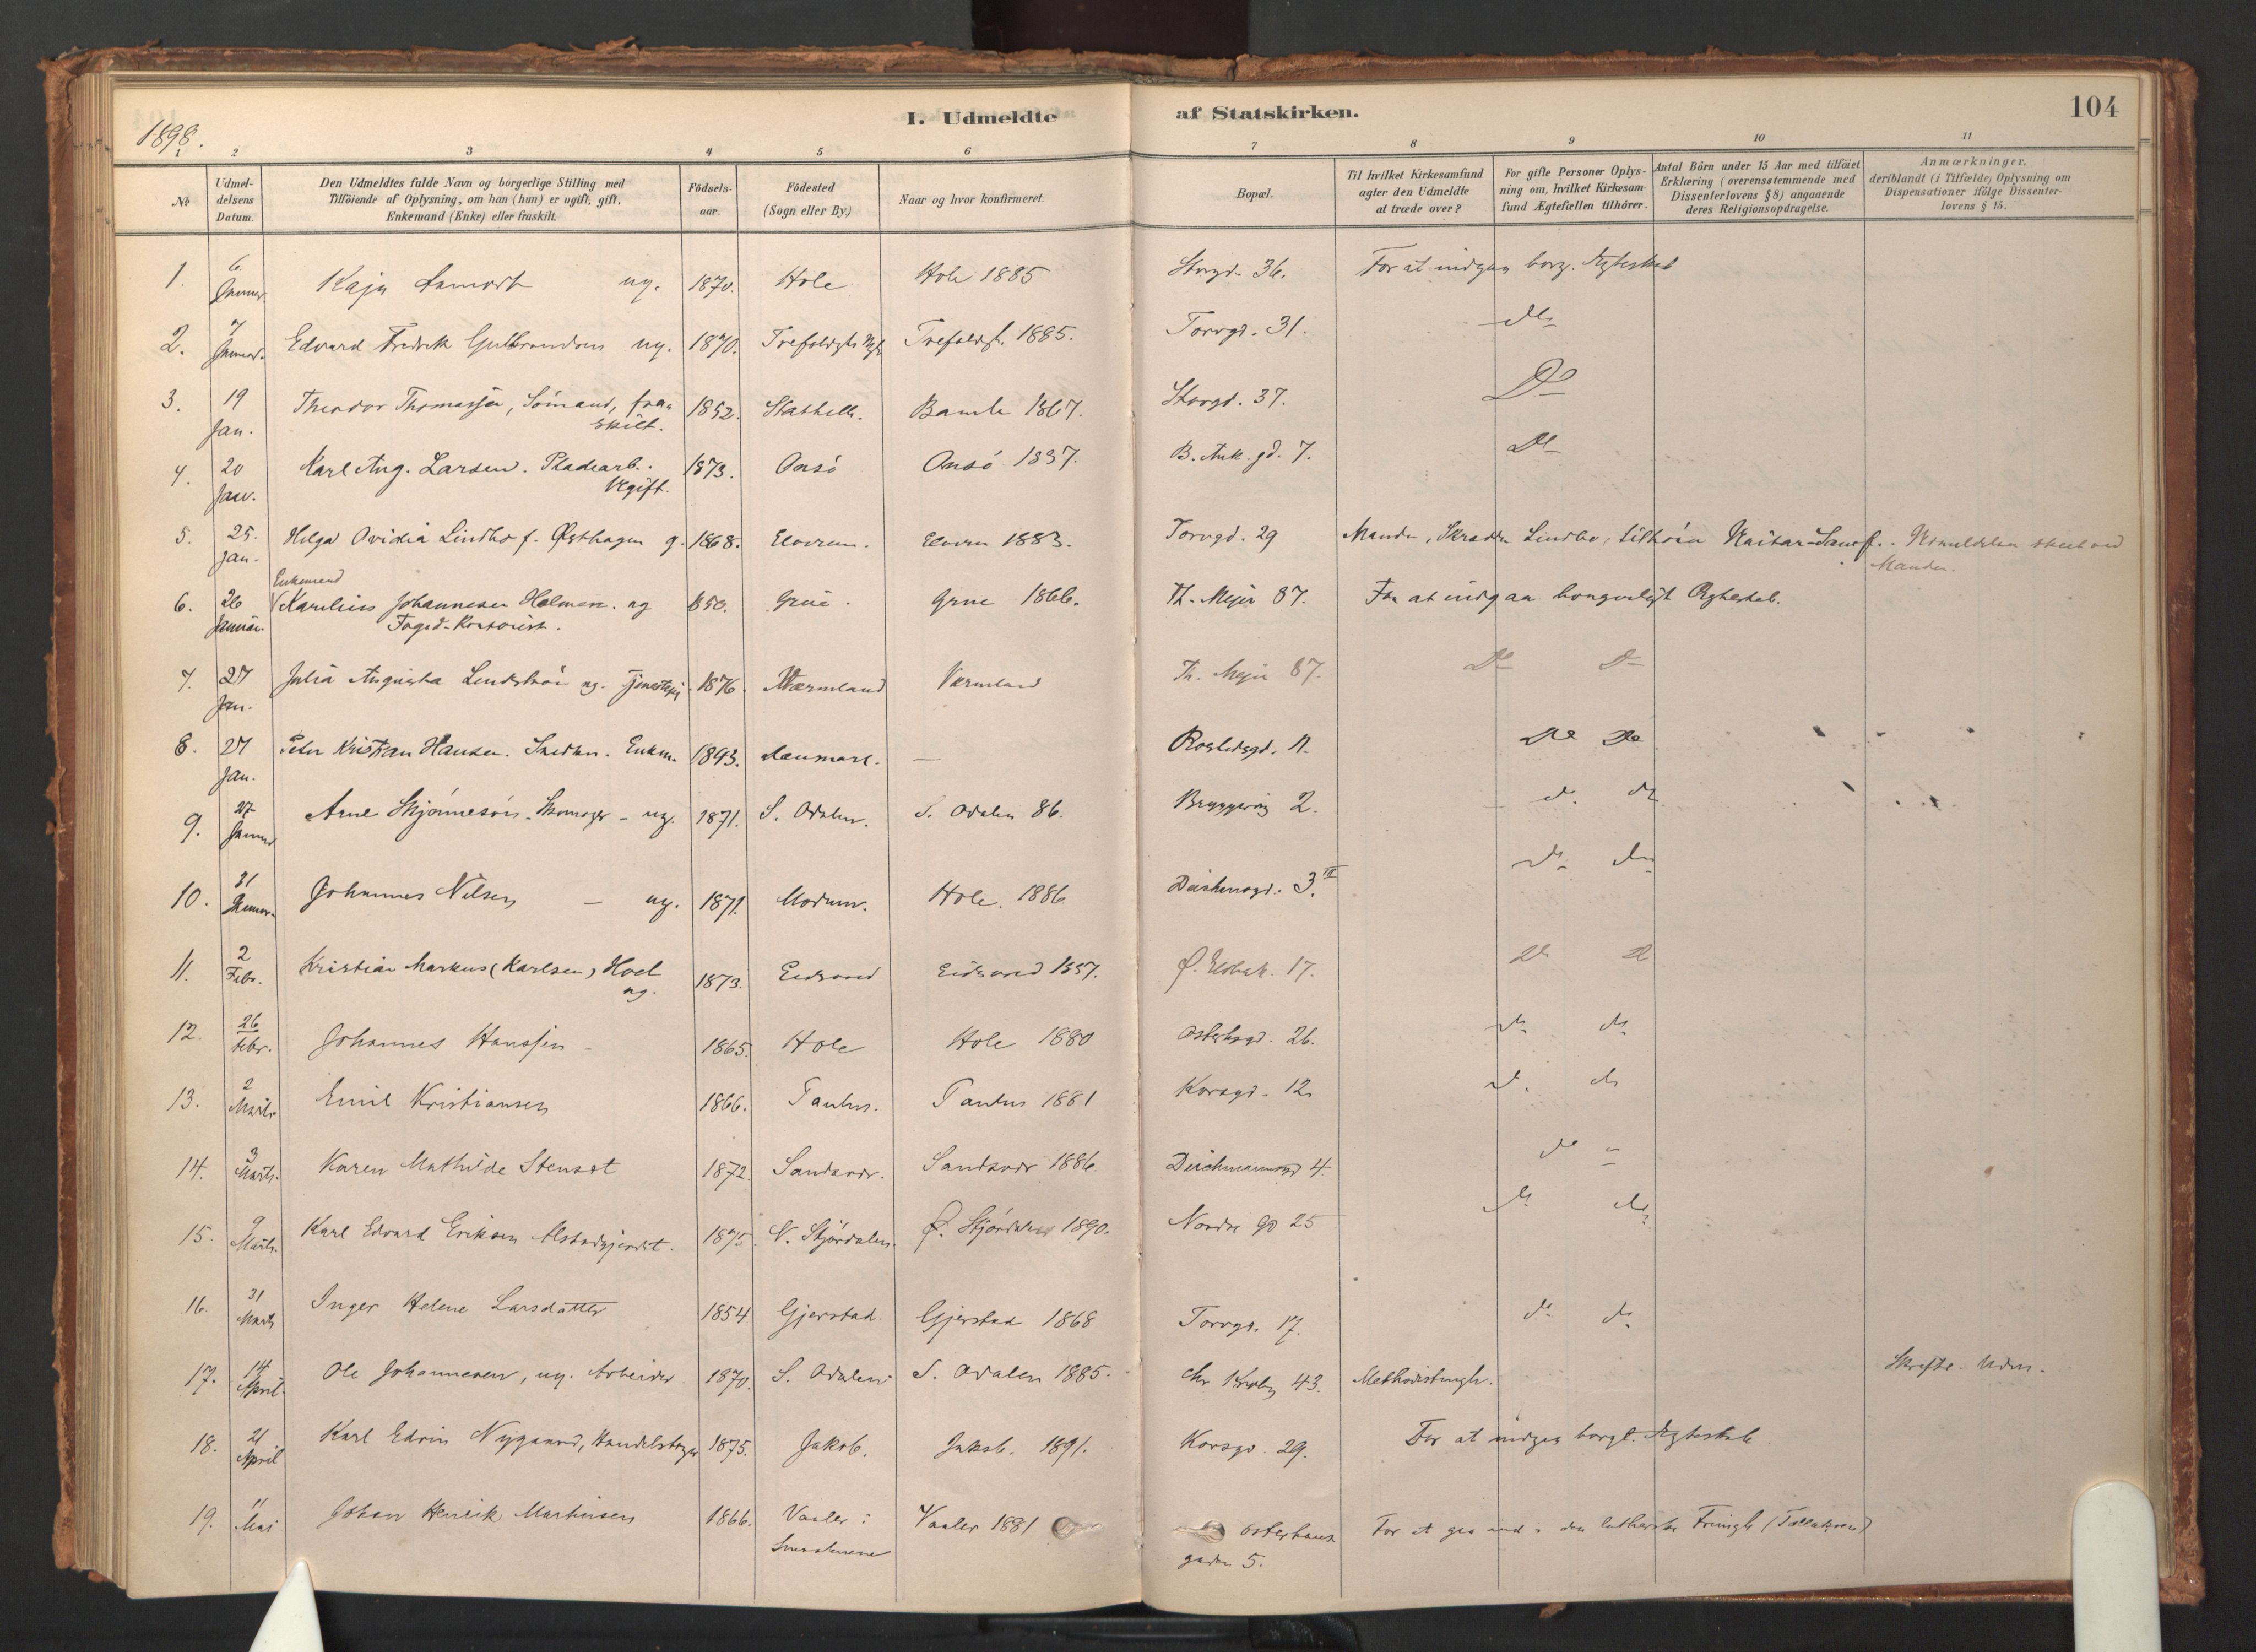 1898.
I. Udmeldte af Statskirken.
104
1 2 3 4 5 6 7 8 9 10 11
No
Udmeldelsens Datum.
Den Udmeldtes fulde Navn og borgerlige Stilling med
Tilföiende af Oplysning, om han (hun) er ugift, gift,
Enkemand (Enke) eller fraskilt.
Födselsaar.
Födested
(Sogn eller By)
Naar og hvor konfirmeret.
Bopæl.
Til hvilket Kirkesamfund
agter den Udmeldte
at træde over?
For gifte Personer Oplysning om, hvilket Kirkesamfund Ægtefællen tilhörer.
Antal Börn under 15 Aar med tilföiet
Erklæring (overensstemmende med
Dissenterlovens §8) angaaende
deres Religionsopdragelse.
Anmærkninger,
deriblandt (i Tilfælde) Oplysning om
Dispensationer ifölge Dissenterlovens § 15.
1. 6. Januar. Kaja ug. 1870. Hole Hole 1885 Storgd. 36. For at indgaa borg. Ægteskab
2. 7 Januar. Edvard Fredrik Gulbrandsen ug. 1870. Trefoldigh. Trefoldigh. 1885. Torvgd. 31. do
3. 19 Jan. Theodor Thomassen, Sömand, fraskilt. 1852. Stathelle. Bamle 1867. Storgd. 37. Do
4. 20 Jan. Karl Aug. Larsen. Pladearb. Ugift. 1873. Onsö Onsö 1887. B. Ank. gd. 7. Do
5. 25. Jan. Helga Ovidia Lindbo f. Østhagen g. 1868. Elverum. Elverum 1883. Torvgd. 29 Manden, Skrædder Lindbo, tilhörer Unitar-Samf. Udmeldelsen skeet ved Manden.
6. 26 Januar. Enkemand (Karelius Johannesen Holmen. ug 1850. Grue. Grue 1866. Th. Meyer 87. For at indgaa borgerligt Ægteskab.
Foged-Kontorist.
7. 27 Jan. Julia Augusta Lindström ug. Tjenestepi. 1876. Wærmland Værmland Th. Meyer 87. Do Do
8. 27 Jan. Peter Kristian Hansen. Snedker. Enkm. 1843. Danmark. — Rostedsgd. 11. Do Do
9. 27 Januar Arne Skjönnesön. Skomager - ug. 1871. S. Odalen. S. Odalen 86. Bryggerig 2. do. do
10. 31 Januar. Johannes Nilsen — ug. 1871. Modum. Hole. 1886 Deichmsgd. 3. II do do
11. 2 Febr. Kristian Markus (Karlsen) Hoel ug. 1873. Eidsvold Eidsvold 1887. 17. do do
12. 26 Febr. Johannes Hanssen - 1865. Hole Hole 1880 Osterhsgd. 26. do do
13. 2 Marts Emil Kristiansen 1866. Tanum. Tanum 1881 Korsgd. 12 do. do
14. 3 Marts. Karen Mathilde Stenset 1872. Sandsvær. Sandsvær 1886. Deichmannsgd 4 do "
15. 9 Marts. Karl Edvard Eriksen Alstadgjerdet. 1875. N. Stjørdalen. Ø. Stjørdalen 1890. Nordre gd 25 do do
16. 31 Marts Inger Helene Larsdatter 1854. Gjerstad. Gjerstad 1868 Torvgd. 17. do do
17. 14 April. Ole Johannesen, ug. Arbeider 1870. S. Odalen S. Odalen 1885. Chr Krohg 43. Methodistmgh. Skriftl. Udm.
18. 21 April Karl Edvin Nygaard, Handelsborger 1875. Jakob. Jakob. 1891. Korsgd. 29. For at indgaa borgl. Ægteskab
19. 11 Mai Johan Henrik Martinsen 1866. Vaaler i Smaalenene Vaaler 1881 Osterhausgaden 5. For at gaa ind i den lutherske Frimgh (Tollefsen)